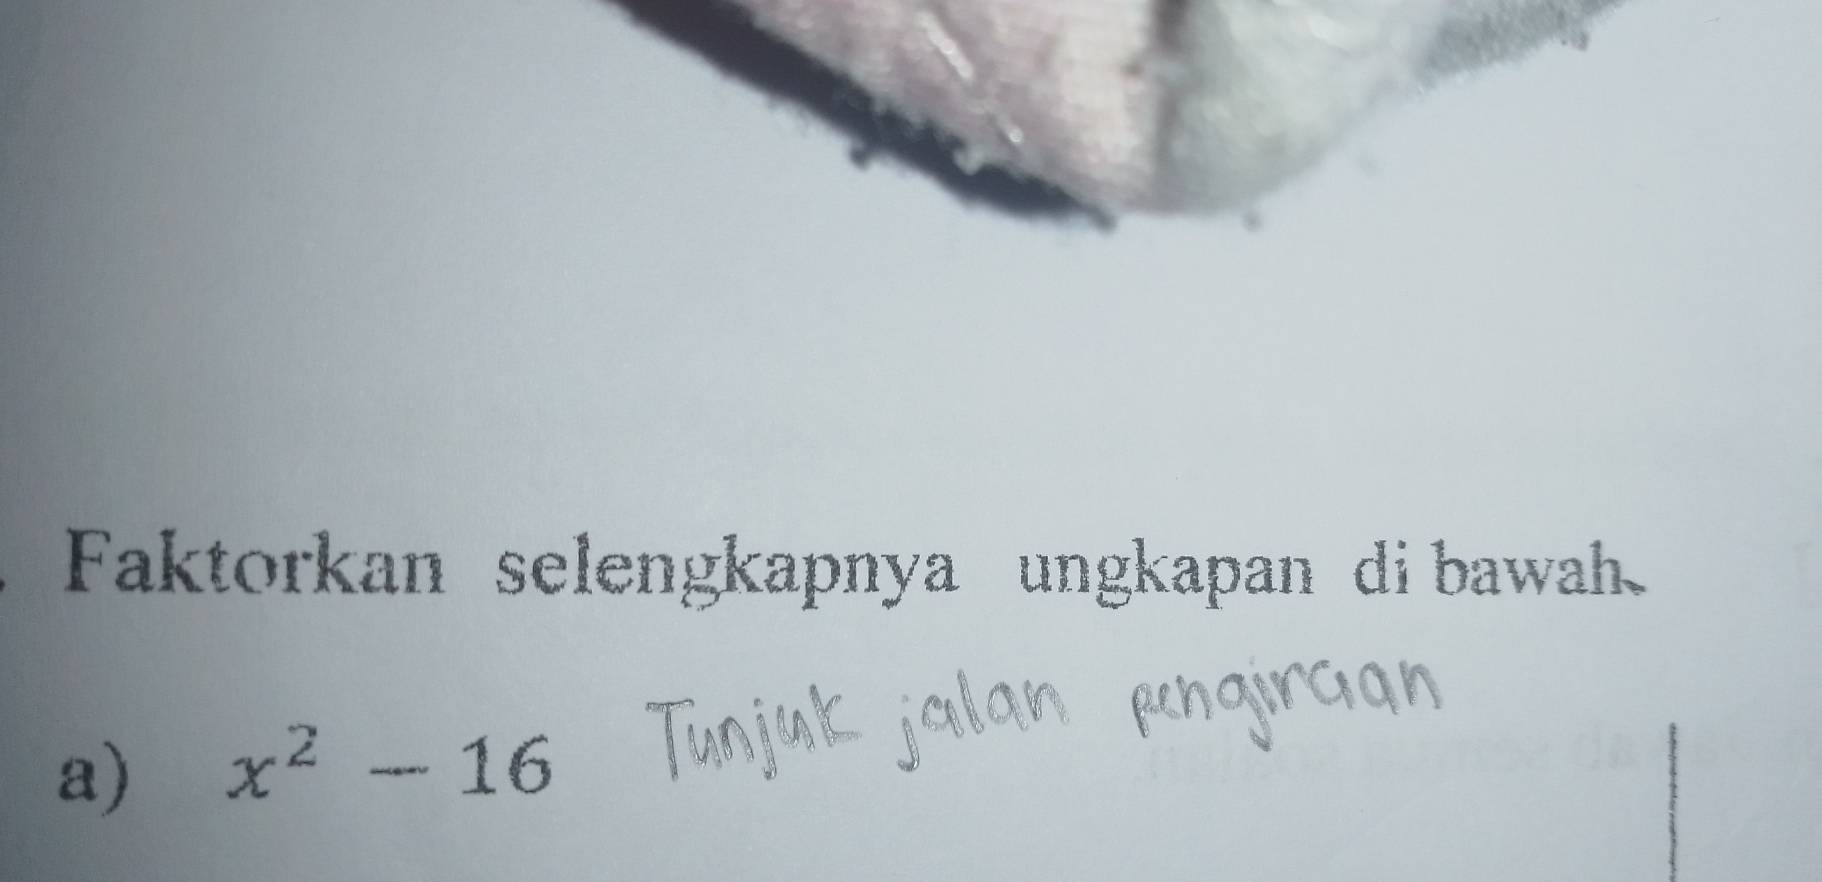 Faktorkan selengkapnya ungkapan di bawah.
a) x² – 16 Tunjuk jalan pengiraan